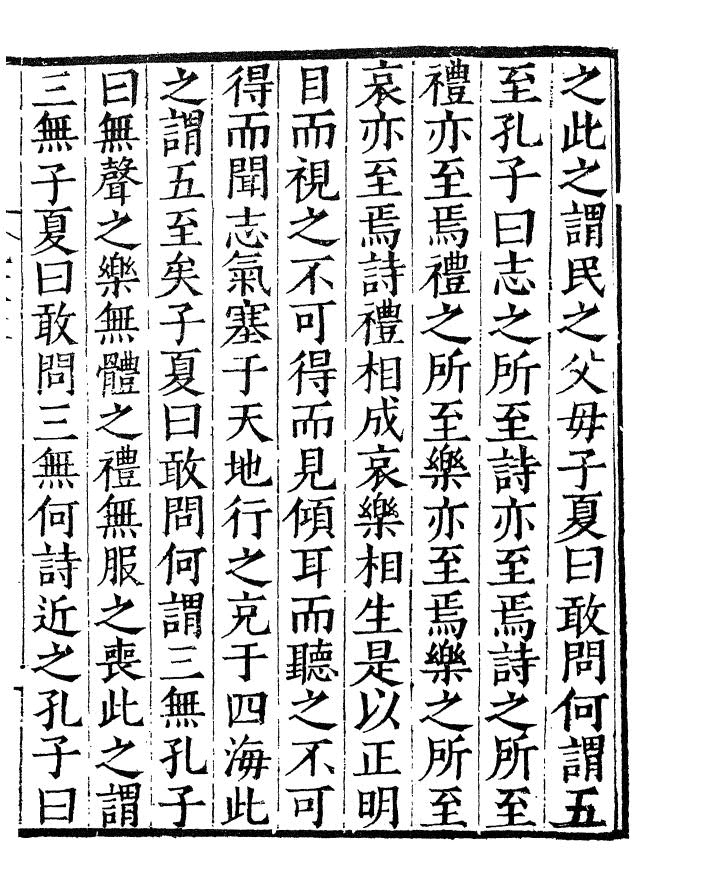 之此之謂民之父毋子夏曰敢問何謂五
至孔子曰志之所至詩亦至焉詩之所至
禮亦至焉禮之所至樂亦至焉樂之所至
哀亦至焉詩禮相成哀樂相生是以正明
目而視之不可得而見傾耳而聽之不可
得而聞志氣塞于天地行之克于四海此
之謂五至矣子夏曰敢問何謂三無孔子
曰無聲之樂無體之禮無服之喪此之謂
三無子夏曰敢問三無何詩近之孔子曰